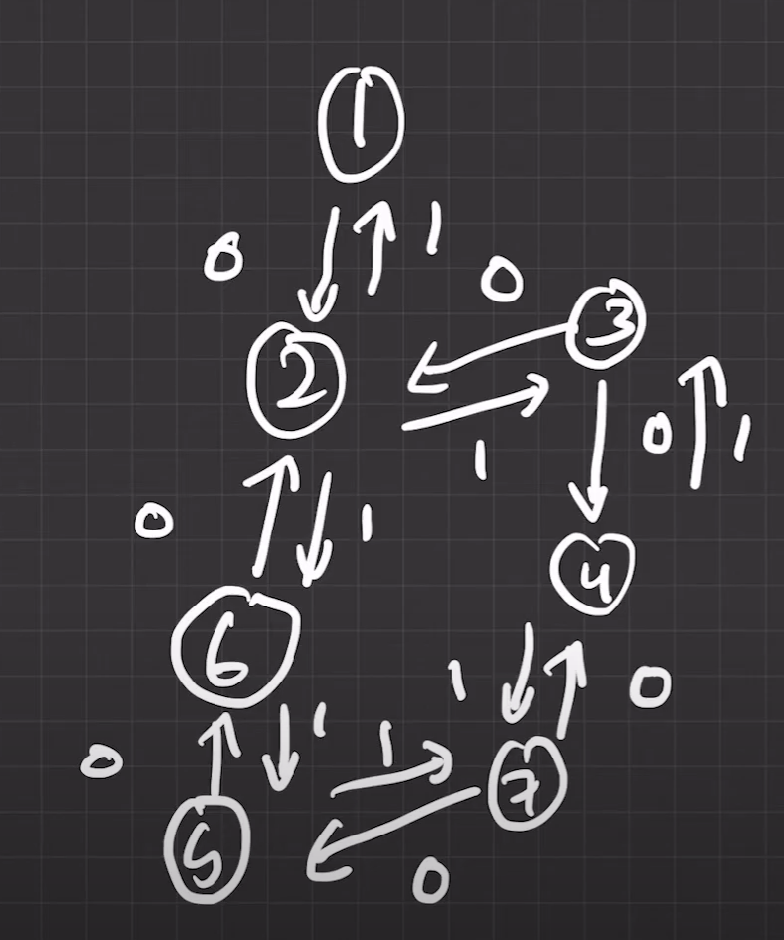 1
0 1
0 3
2
1 0 1
0 1
4
6
1 0
0 1 1
7
5
0